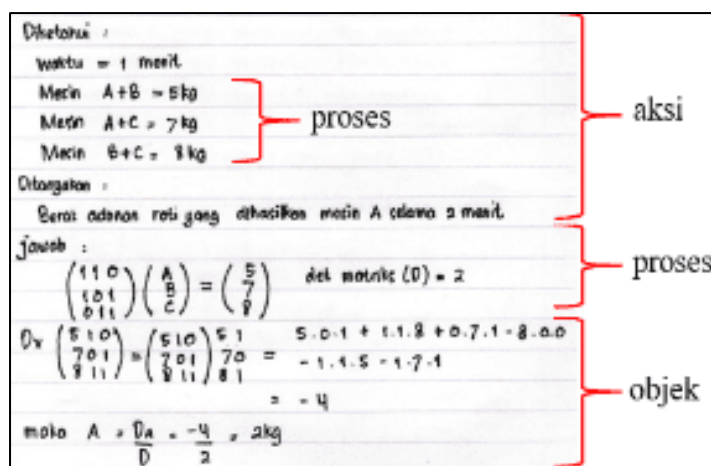 Diketahui :
waktu = 1 menit
Mesin A+B = 5 kg
Mesin A+C = 7 kg
Mesin B+C = 8 kg
proses
aksi
Ditanyakan :
Berat adonan roti yang dihasilkan mesin A selama 2 menit
jawab :
(1 1 0) (A) = (5)
(1 0 1) (B) (7) det matriks (D) = 2
(0 1 1) (C) (8)
proses
Dx (5 1 0) = (5 1 0) 5 1 = 5.0.1 + 1.1.8 + 0.7.1 - 8.0.0
(7 0 1) (7 0 1) 7 0 - 1.1.5 - 1.7.1
(8 1 1) (8 1 1) 8 1
= -4
objek
maka A = DA/D = -4/2 = 2kg